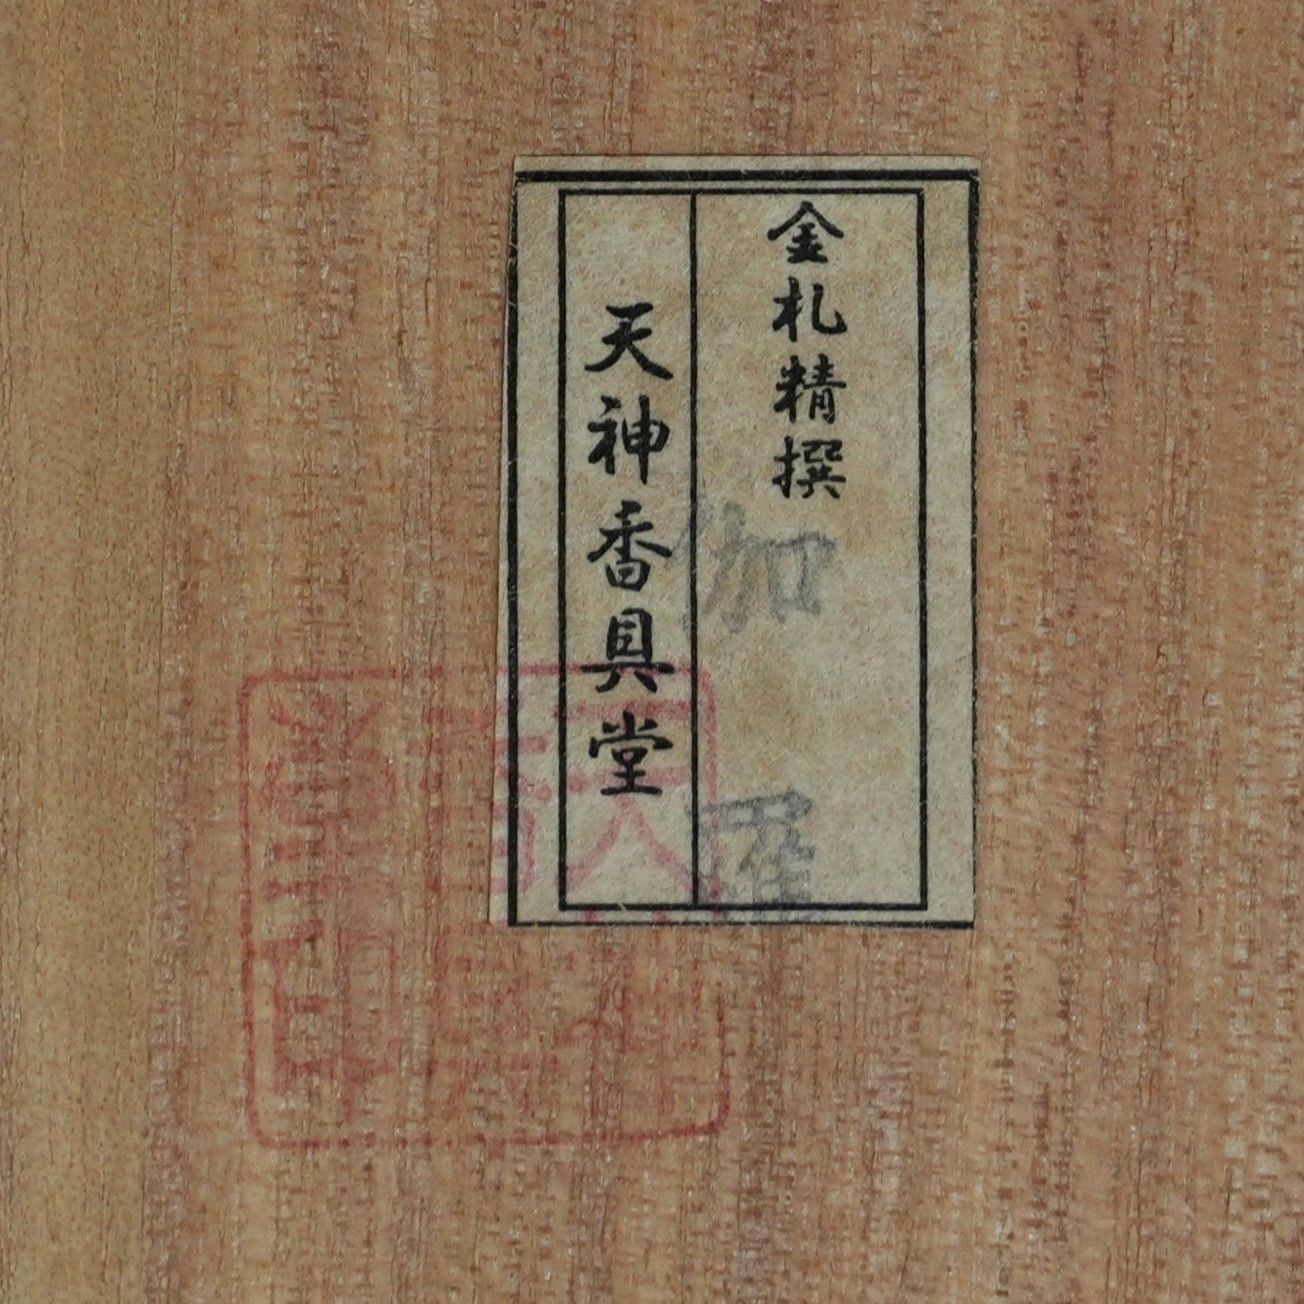 金札精撰
伽羅
天神香具堂